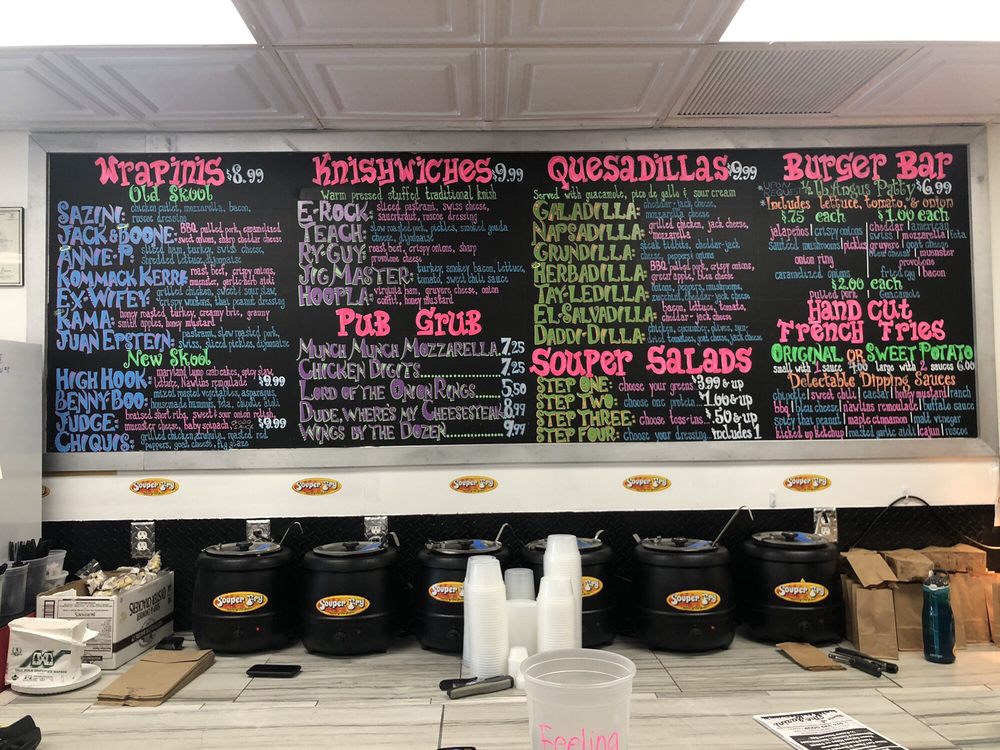 Wrapinis $8.99
Old Skool
Sazini: chicken cutlet, mozzarella, bacon,
roscoe dressing
Jack & Boone: BBQ pulled pork, caramelized
sweet onions, sharp cheddar cheese
Annie-P: sliced ham, turkey, swiss cheese,
shredded lettuce, dijonaise
Kommack Kerre: roast beef, crispy onions,
muenster, garlic-herb aioli
Ex-Wifey: grilled chicken, sweet & sour slaw,
crispy wontons, thai peanut dressing
Kama: honey roasted turkey, creamy brie, granny
smith apples, honey mustard
Juan Epstein: pastrami, slow roasted pork,
swiss, sliced pickles, dijonaise
New Skool
High Hook: maryland lump crab cakes, spicy slaw,
lettuce, Nawlins remoulade $9.99
Benny Boo: mixed roasted vegetables, asparagus,
homemade hummus, feta, chipotle aioli
Judge: braised short rib, sweet & sour onion relish,
muenster cheese, baby spinach $9.99
Chiquis: grilled chicken, arugula, roasted red
peppers, goat cheese,
Knishwiches $9.99
Warm pressed stuffed traditional knish
E-Rock: sliced pastrami, swiss cheese,
sauerkraut, roscoe dressing
Teach: slow roasted pork, pickles, smoked gouda
cheese, dijonaise
Ry-Guy: roast beef, crispy onions, sharp
provolone cheese
Jig Master: turkey, smokey bacon, lettuce,
tomato, sweet chili sauce
Hoopla: virginia ham, gruyere cheese, onion
confit, honey mustard
Pub Grub
Munch Munch Mozzarella. 7.25
Chicken Digits 7.25
Lord of the Onion Rings 5.50
Dude, Where's My Cheesesteak 8.99
Wings by the Dozen 9.99
Quesadillas $9.99
Served with guacamole, pico de gallo & sour cream
Galadilla: cheddar-jack cheese,
mozzarella cheese
Napsadilla: grilled chicken, jack cheese,
mozzarella
Grundilla: steak tidbits, cheddar-jack
cheese, peppers onions
Herbadilla: BBQ pulled pork, crispy onions,
green apple, bleu cheese
Tay-Ledilla: onions, peppers, mushrooms,
zucchini, cheddar-jack cheese
El-Salvadilla: bacon, lettuce, tomato,
cheddar-jack cheese
Daddi-Dilla: chicken, cucumber, olives, sun-
dried tomatoes, goat cheese, jack cheese
Souper Salads
Step One: choose your greens $3.99 & up
Step Two: choose one protein... $1.00 & up
Step Three: choose toss-ins... $.50 & up
Step Four: choose your dressing... includes 1
Burger Bar
Upon Request ½ lb Angus Patty $6.99
*Includes lettuce, tomato, & onion
$.75 each $1.00 each
jalapeños crispy onions cheddar american
sauteed mushrooms pickles swiss mozzarella feta
gruyere goat cheese
bleu cheese muenster
onion ring provolone
caramelized onions fried egg bacon
$2.00 each
pulled pork guacamole
Hand Cut
French Fries
Original or Sweet Potato
small with 1 sauce 4.00 large with 2 sauces 6.00
Delectable Dipping Sauces
chipotle sweet chili caesar honey mustard ranch
bbq bleu cheese nawlins remoulade buffalo sauce
spicy thai peanut maple cinnamon malt vinegar
kicked up ketchup roasted garlic aioli cajun roscoe
Souper Fry
Souper Fry
Souper Fry
Souper Fry
Souper Fry
Souper Fry
Souper Fry
Souper Fry
Souper Fry
Souper Fry
OYSTER CRACKERS
Feeling